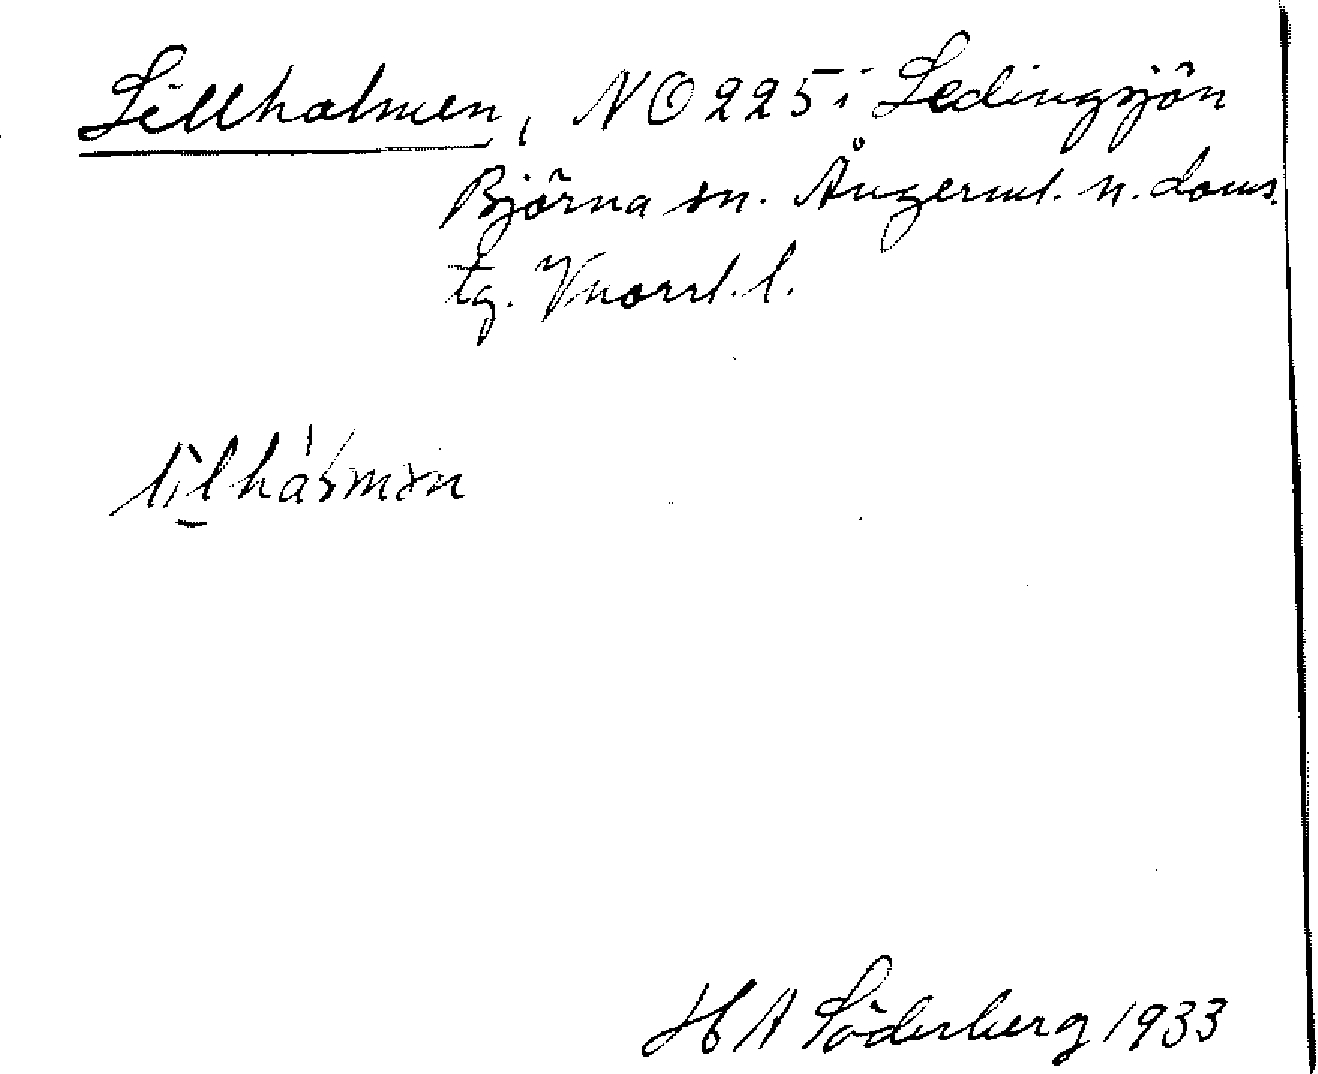 Lillholmen, NO 225 i Ledingsjön
Björna sn. Ångerml. n. doms.
tg. Vnorrl. l.
HA Söderberg 1933